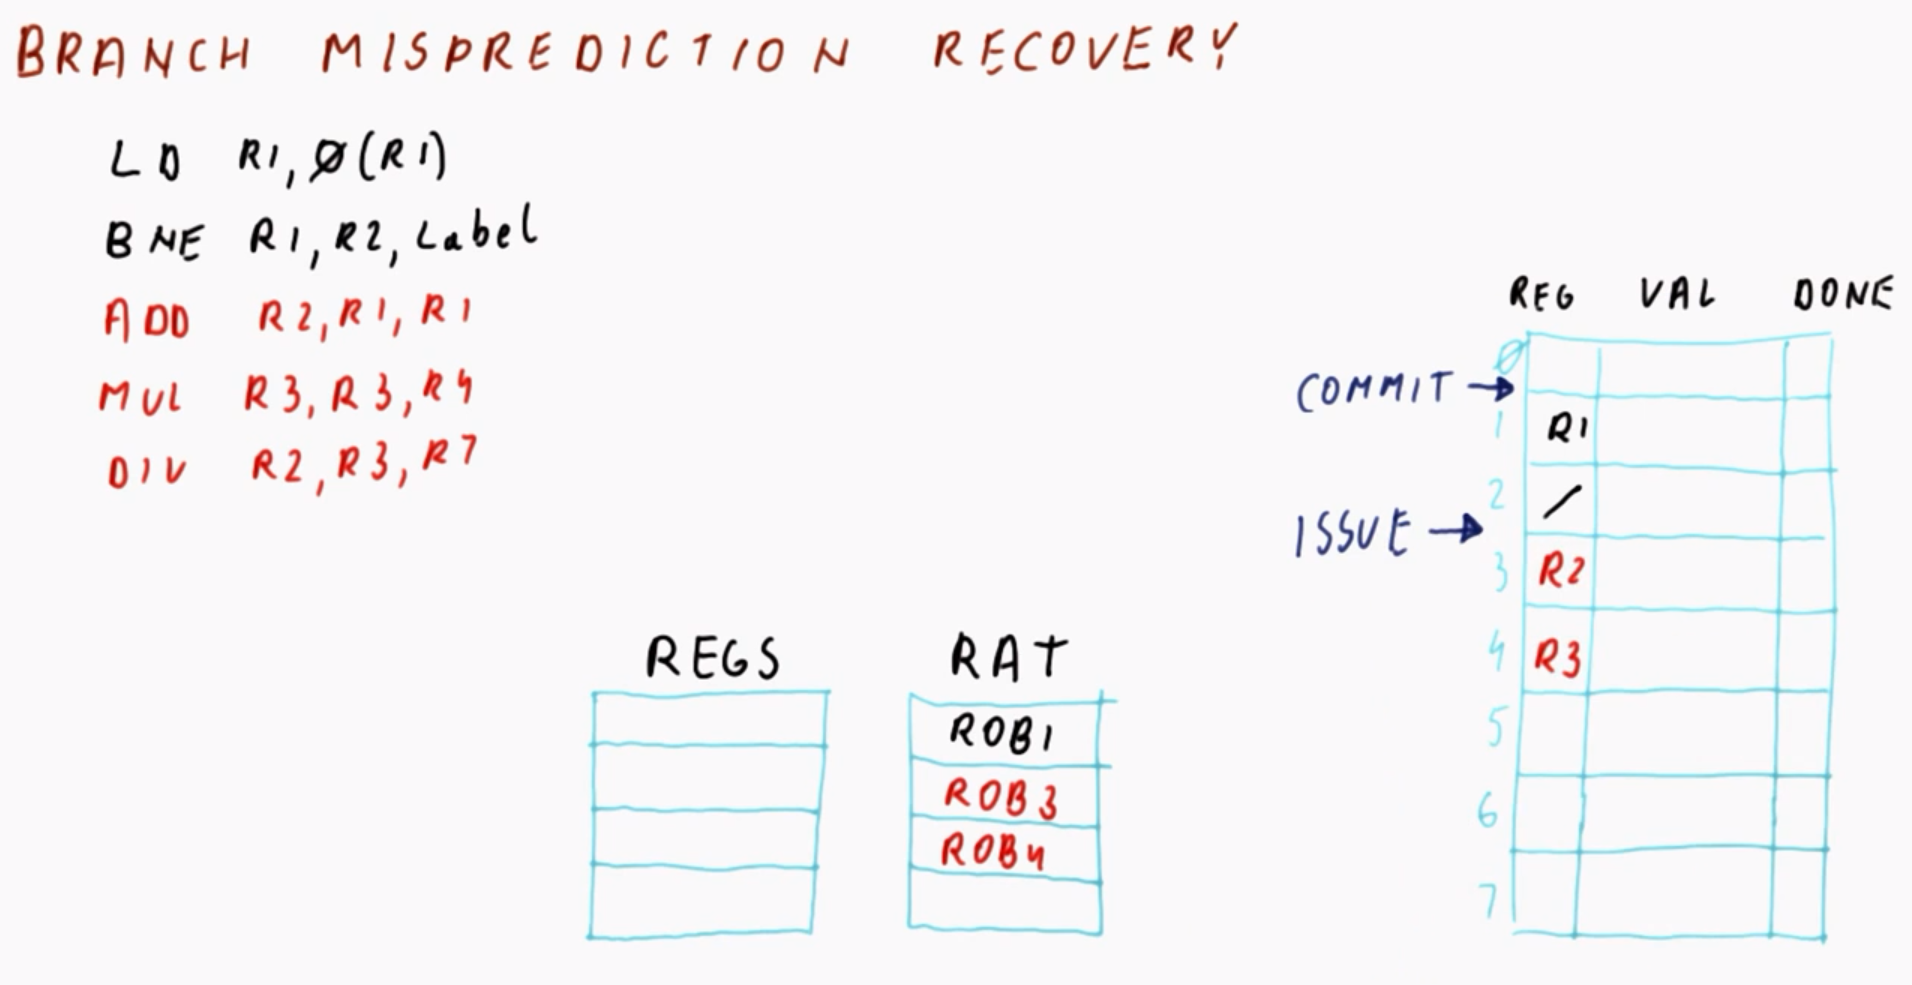 BRANCH MISPREDICTION RECOVERY
LD R1, Ø(R1)
BNE R1, R2, Label
ADD R2, R1, R1
MUL R3, R3, R4
DIV R2, R3, R7
REGS
RAT
ROB1
ROB3
ROB4
COMMIT →
ISSUE →
REG VAL DONE
Ø
1 R1
2 /
3 R2
4 R3
5
6
7